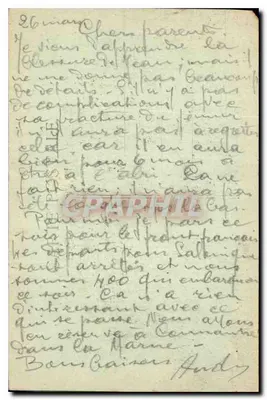 26 mars
Chers parents
Je viens d'apprendre la
blessure de Jean, mais il
ne me donne pas beaucoup
de détails. S'il n'y a pas
de complications avec
sa fracture du fémur
il n'aura pas à regretter
cela, car il en aura
bien pour 6 mois à
être à l'abri. Ça ne
fait rien, il n'aura pas
été là-bas
Pour moi je pars ce
soir pour le front français
les départs pour Salonique
sont arrêtés et nous
sommes 400 qui embarquons
ce soir. Ça n'a rien
d'intéressant avec ce
qui se passe. Nous allons
en réserve à Connantre
dans la Marne.
Bons baisers
André
PRPHIL